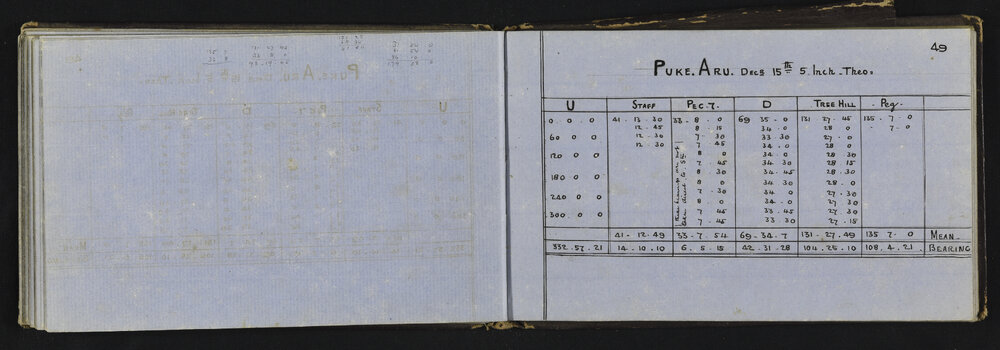 49
PUKE. ARU. Decr 15th 5. Inch. Theo.
U STAFF PEG. 7. D TREE HILL Peg.
0 . 0 . 0 41 . 13 . 30 33 . 8 . 0 69 35 . 0 131 27 . 45 135 . 7 . 0
12 . 45 8 . 15 34 . 0 28 0 7 . 0
60 0 0 12 . 30 7 . 30 33 30 27 . 0
12 . 30 7 45 34 . 0 28 0
120 0 0 8 0 34 . 0 28 30
7 . 45 34 . 30 28 15
180 0 0 8 . 30 34 . 45 28 . 30
8 0 34 30 28 . 0
240 0 0 7 . 30 34 0 27 . 30
8 . 0 34 . 0 27 30
300 . 0 0 7 . 45 33 . 45 27 30
7 . 45 33 30 27 . 15
41 . 12 . 49 33 . 7 . 54 69 . 34 . 7 131 . 27 . 49 135 7 . 0 MEAN
332 . 57 . 21 14 . 10 . 10 6 . 5 . 15 42 . 31 . 28 104 . 25 . 10 108 . 4 . 21 BEARING